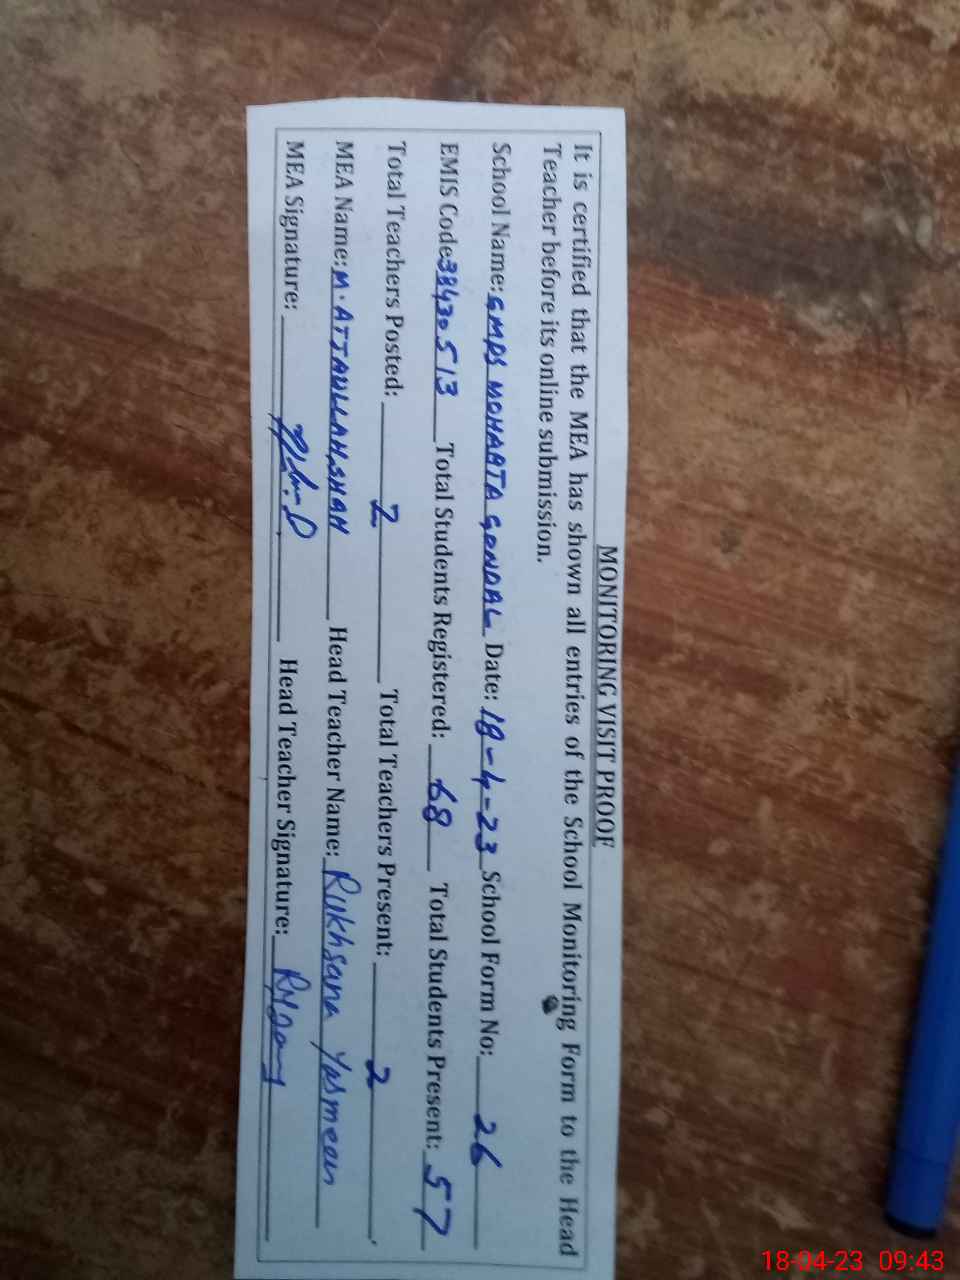 MONITORING VISIT PROOF
It is certified that the MEA has shown all entries of the School Monitoring Form to the Head
Teacher before its online submission.
School Name: GMPS MOHARTA GONDAL Date: 18-4-23 School Form No: 26
EMIS Code 38430513 Total Students Registered: 68 Total Students Present: 57
Total Teachers Posted: 2 Total Teachers Present: 2
MEA Name: M. ATTAULLAH SHAH Head Teacher Name: Rukhsana Yasmeen
MEA Signature: Head Teacher Signature:
18-04-23 09:43